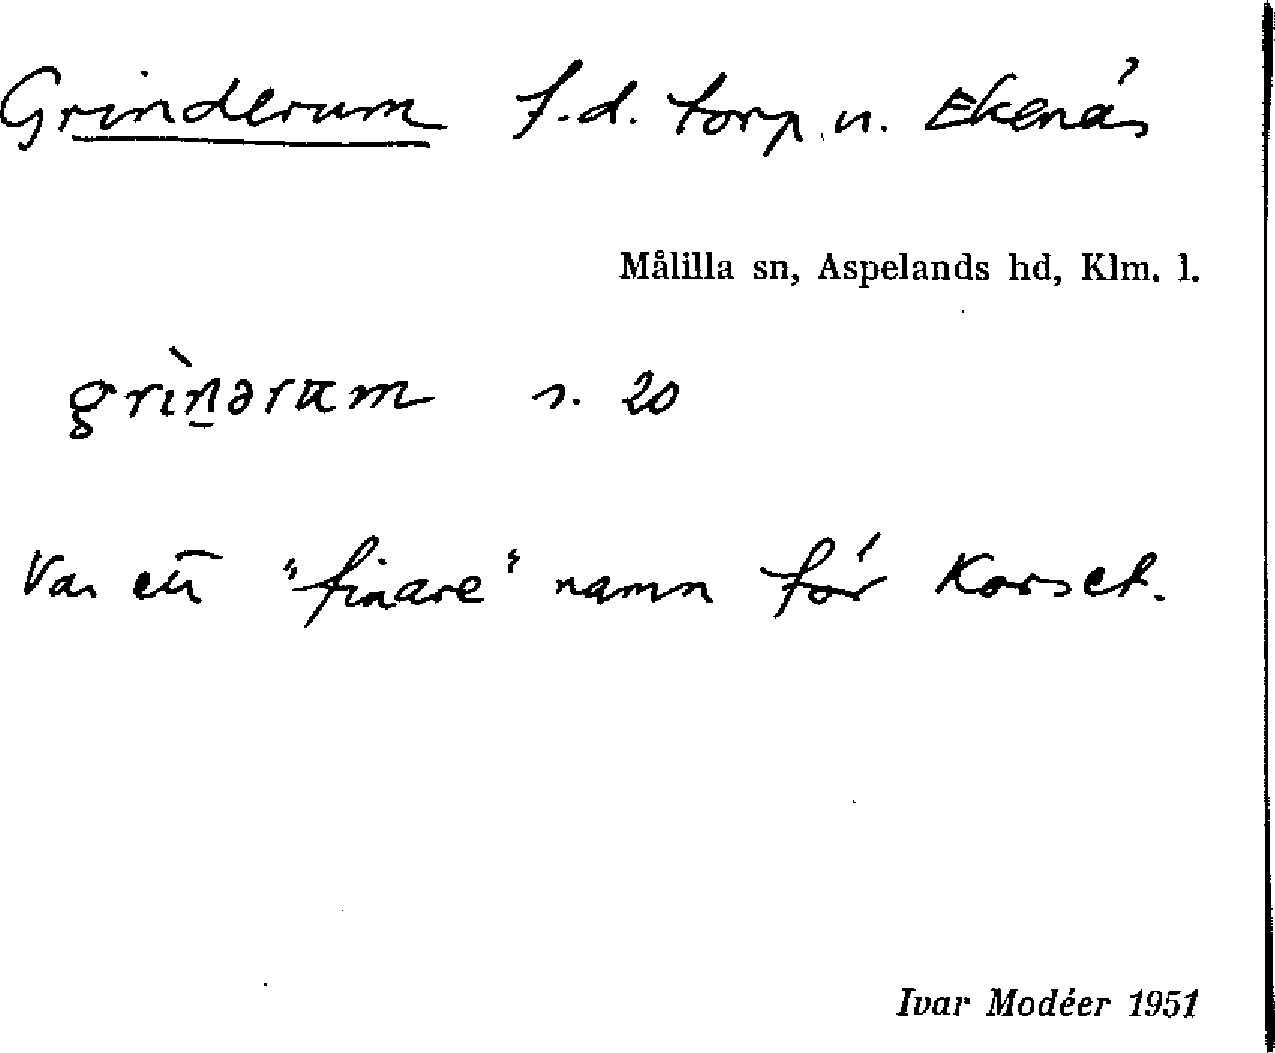 Grinderum f.d. torp u. Ekenäs
Målilla sn, Aspelands hd, Klm. l.
s. 20
Var ett "finare" namn för Korset.
Ivar Modéer 1951